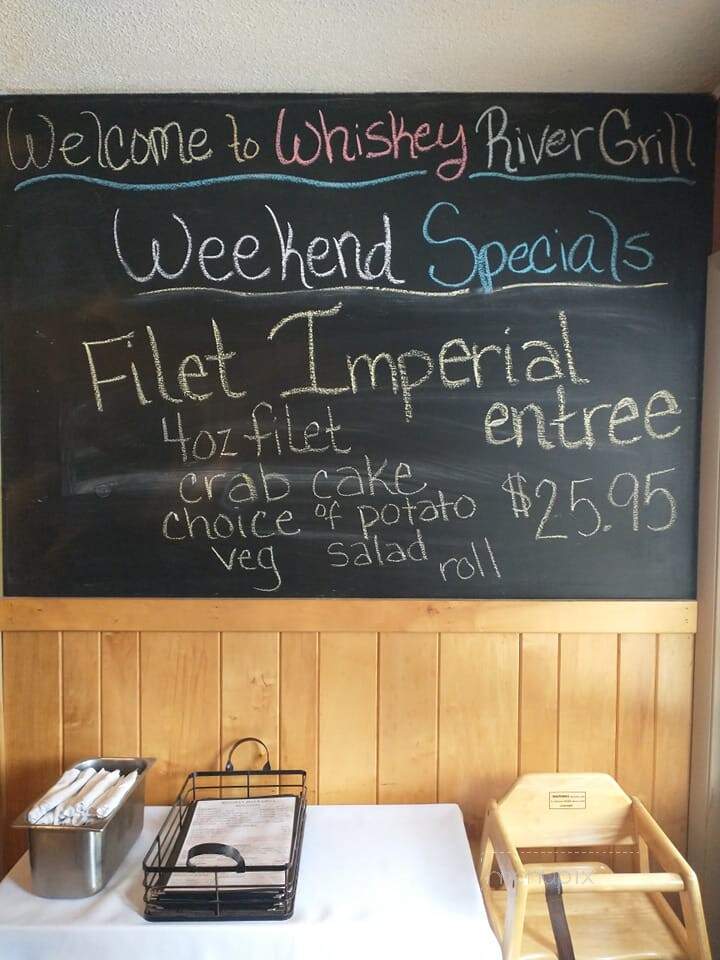 Welcome to Whiskey River Grill
Weekend Specials
Filet Imperial
entree
4oz filet
crab cake
$25.95
choice of potato
veg salad roll
WARNING